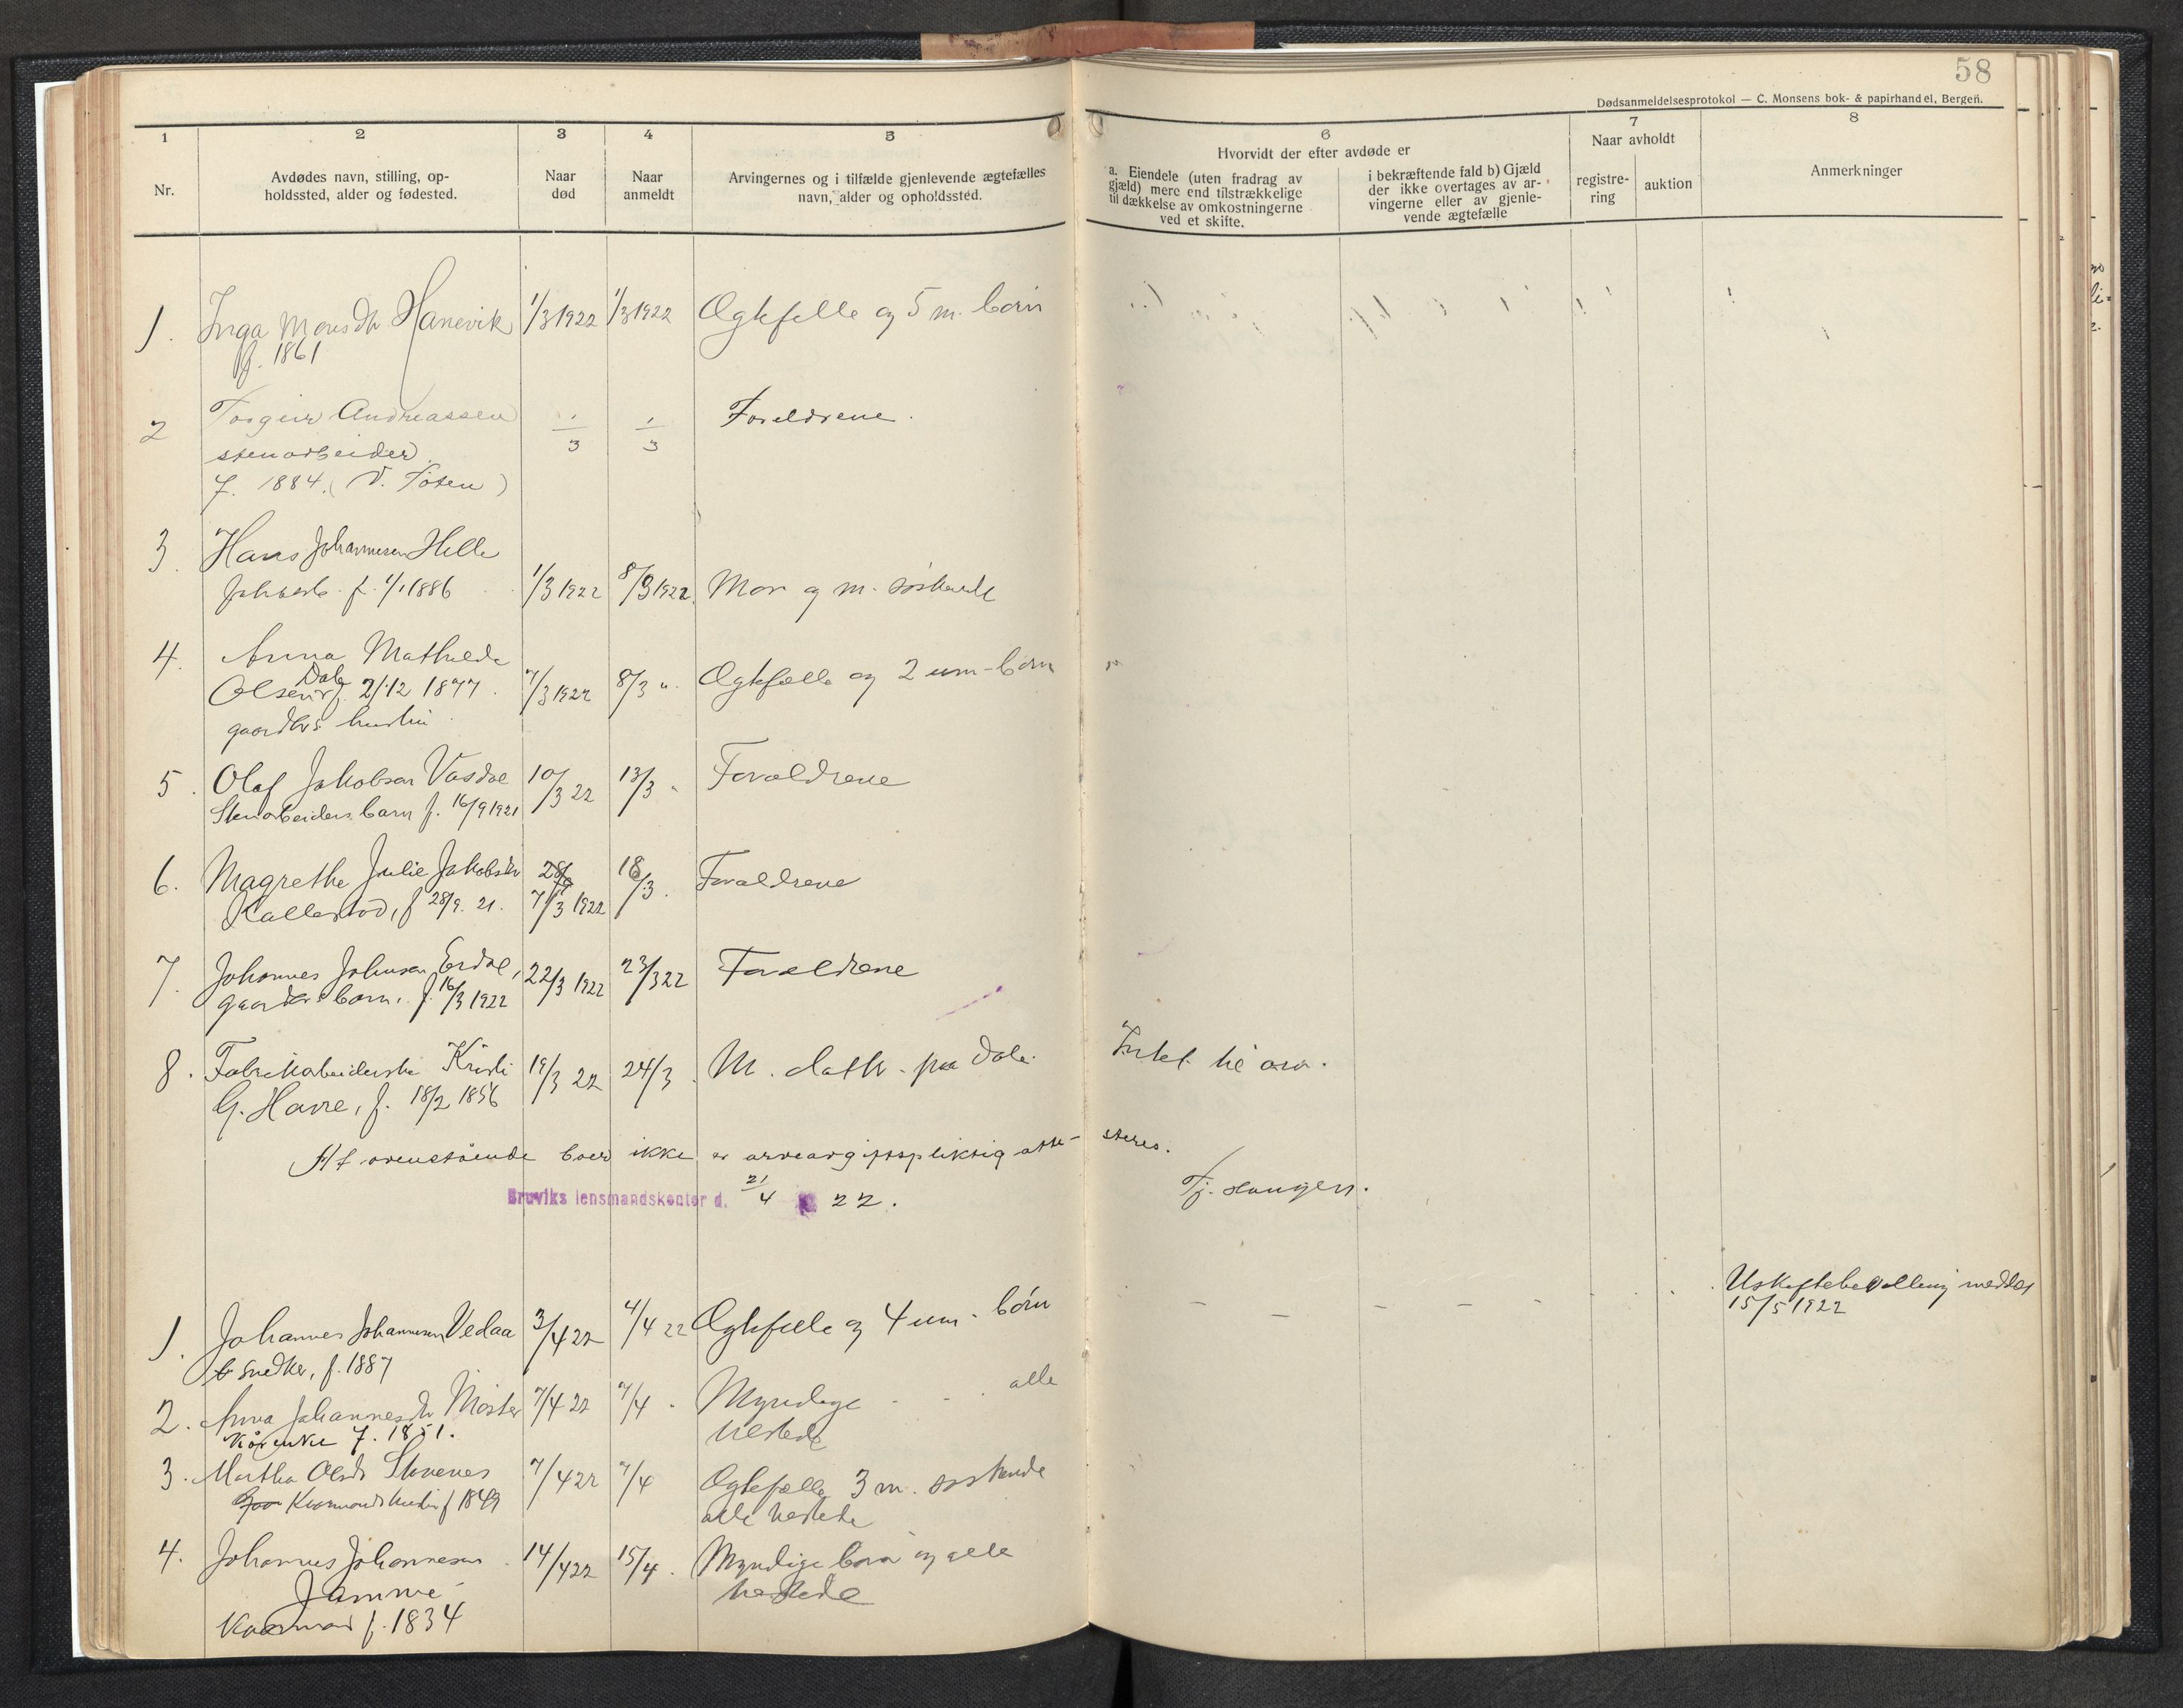 58
Dødsanmeldelsesprotokol — C. Monsens bok- & papirhandel, Bergen.
1 2 3 4 5 6 7 8
Nr.
Avdødes navn, stilling, op-
holdssted, alder og fødested.
Naar
død
Naar
anmeldt
Arvingernes og i tilfælde gjenlevende ægtefælles
navn, alder og opholdssted.
Hvorvidt der efter avdøde er
a. Eiendele (uten fradrag av
gjæld) mere end tilstrækkelige
til dækkelse av omkostningerne
ved et skifte.
i bekræftende fald b) Gjæld
der ikke overtages av ar-
vingerne eller av gjenle-
vende ægtefælle
Naar avholdt
registre-
ring
auktion
Anmerkninger
1. Inga Monsdtr Hanevik 1/3 1922 1/3 1922 Ægtefelle og 5 m. børn
f. 1861
2 Torgeir Andreassen 1/3 1/3 Foreldrene.
stenarbeider
f. 1884. (V. Toten)
3. Hans Johannesen Helle
f. 1/1 1886 1/3 1922 8/3 1922 Mor og m. søskende
4. Anna Mathilde
Olsen Dale f. 21/12 1877. 7/3 1922 8/3 " Ægtefælle og 2 um-børn
gaardbrs hustru
5. Olaf Jakobsen Vasdal 10/3 22 13/3 " Forældrene
Stenarbeiders barn f. 16/9 1921
6. Magrethe Julie Jakobsdtr 28/9 18/3. Forældrene
Kallestad, f 28/9. 21. 7/3 1922
7. Johannes Johnsen Erdal, 22/3 1922 23/3 22 Forældrene
gaardbrs barn. f. 16/3 1922
8. Fabrikarbeiderske Kristi 19/3 22 24/3. M. datter paa Dale. Intet til arv.
G. Havre, f. 18/2 1856
At ovenstående boer ikke er arveavgiftspliktig atte- steres.
Bruviks lensmandskontor d. 21/4 22.
Tj. Haugen.
1. Johannes Johannesen Vedaa 3/4 22 4/4 22 Ægtefelle og 4 um. børn Uskiftebevilling meddelt
snedker, f. 1887 15/5 1922
2. Anna Johannesdtr Moster 7/4 22 7/4 " Myndige - alle
kårenke f. 1851. tilstede
3. Martha Olsdtr Stavenes 7/4 22 7/4 Ægtefælle 3 m. søskende
Kaarmands hustru f 1849 alle tilstede
4. Johannes Johannesen 14/4 22 15/4. Myndige børn og alle
Jamne tilstede
Kaarmand f. 1834